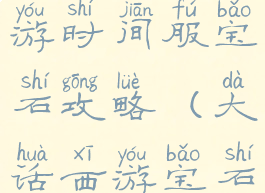 yóu shí jiān fú bǎo
游时间服宝
shí gōng lüè dà
石攻略（大
huà xī yóu bǎo shí
话西游宝石